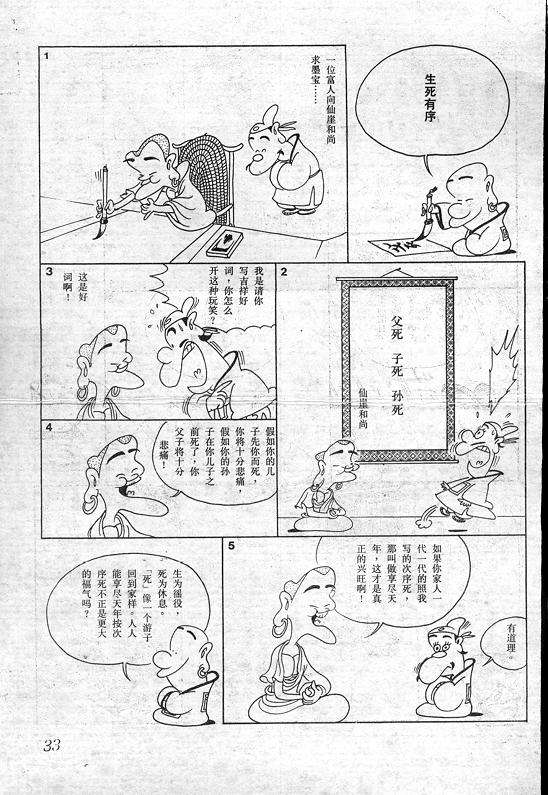 生死有序
1
一位富人向仙崖和尚
求墨宝……
2
父死 子死 孙死
仙崖和尚
3
我是请你
写吉祥好
词，你怎么
开这种玩笑？
这是好
词啊！
4
假如你的儿
子先你而死，
你将十分悲痛，
假如你的孙
子在你儿子之
前死了，你
父子将十分
悲痛！
5
如果你家人一
代一代的照我
写的次序死，
那叫做享尽天
年，这才是真
正的兴旺啊！
有道理。
生为徭役，
死为休息。
「死」像一个游子
回到家样。人人
能享尽天年按次
序死不正是更大
的福气吗？
33